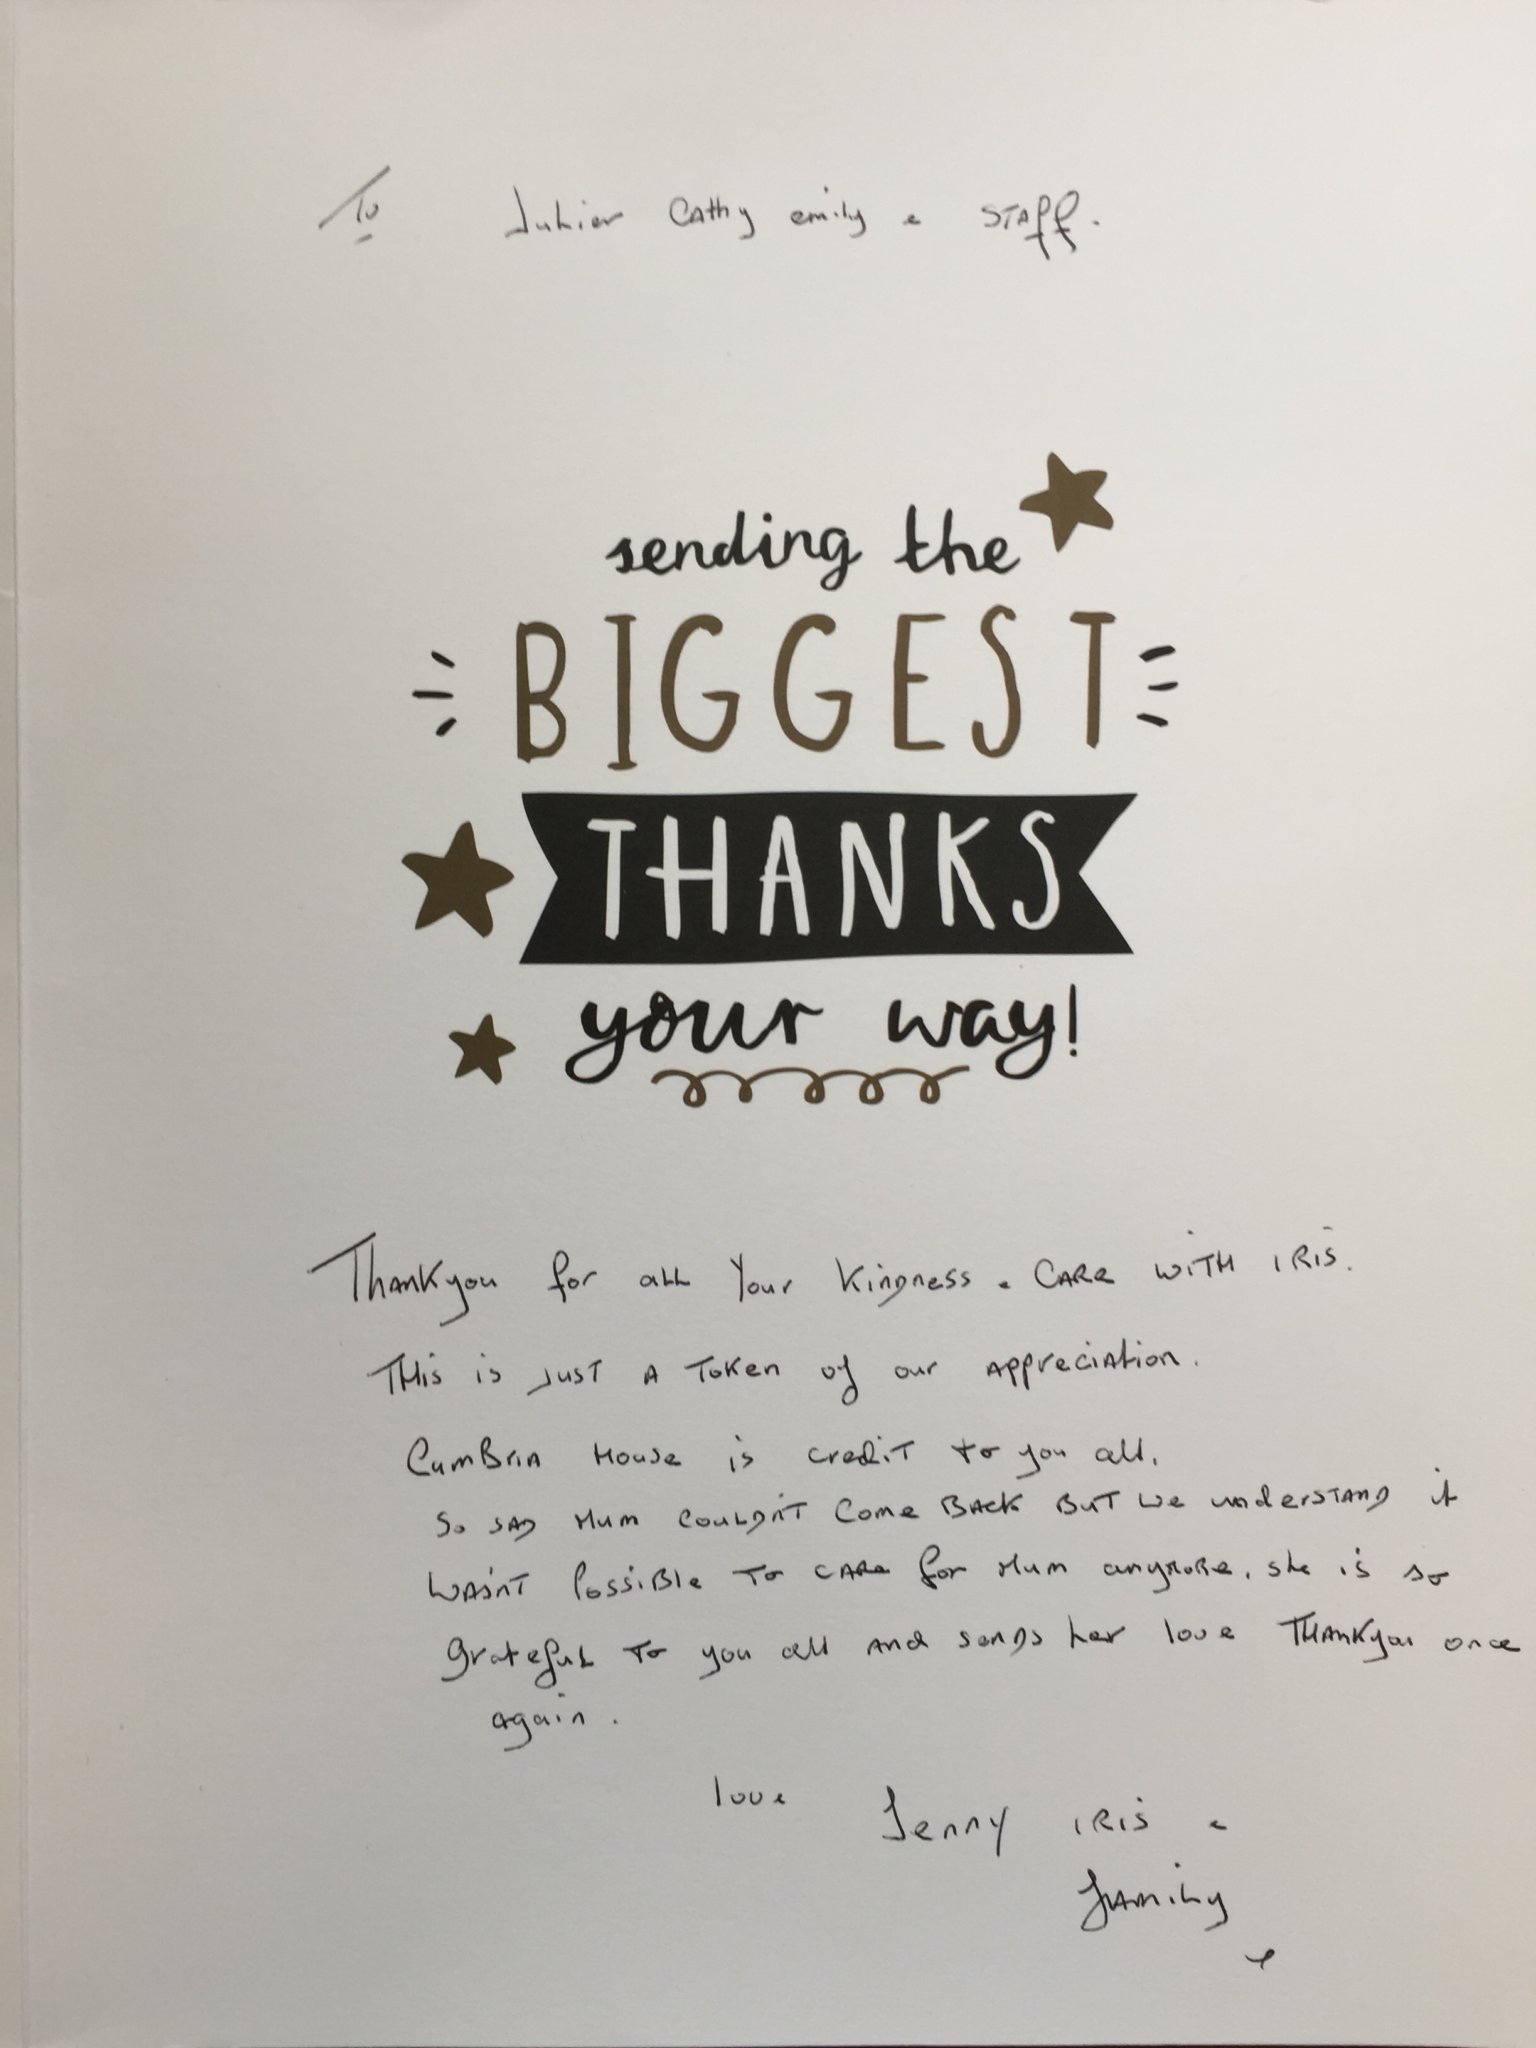 To Cathy emily & STAff.
sending the
BIGGEST
THANKS
your way!
Thankyou for all Your Kindness & CARe WITH IRIS.
THis is JUST A Token of our AppreciAtion.
CumBriA House is crediT to you all.
So SAD Mum COULDn'T Come BACK BUT we underSTAND it
WASn'T PossiBle To CARe for Mum anymoRe. She is so
grateful To you all And sends her love THANKyou once
again.
love Jenny IRIS &
family